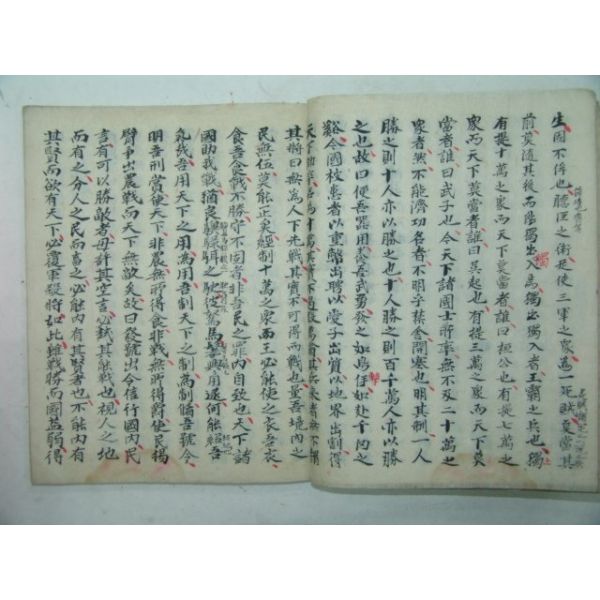 生固不侔也聽臣之術足使三軍之衆爲一死賊莫當其
前莫隨其後而能獨出入焉獨出獨入者王霸之兵也獨
有提十萬之衆而天下莫當者誰曰桓公也有提七萬之
衆而天下莫當者誰曰吳起也有提三萬之衆而天下莫
當者誰曰武子也今天下諸國士所率無不及二十萬之
衆者然不能濟功名者不明乎禁舍開塞也明其制一人
勝之則十人亦以勝之也十人勝之則百千萬人亦以勝
之也故曰便吾器用養吾武勇發之如鳥擊如赴千仞之
谿今國被患者以重幣出聘以愛子出質以地界出割得
天下助卒名爲十萬其實不過數萬爾其兵來者無不謂
其將曰無爲人下先戰其實不可得而戰也量吾境內之
民無伍莫能正矣經制十萬之衆而王必能使之衣吾衣
食吾食戰不勝守不固者非吾民之罪內自致也天下諸
國助我戰猶良驥騄駬之駛彼駑馬鬐興角逐何能紹吾
氣哉吾用天下之用爲用吾制天下之制爲制脩吾號令
明吾刑賞使天下非農無所得食非戰無所得爵使民揚
臂爭出農戰而天下無敵矣故曰發號出令信行國內民
言有可以勝敵者毋許其空言必試其能戰也視人之地
而有之分人之民而畜之必能內有其賢者也不能內有
其賢而欲有天下必覆軍殺將如此雖戰勝而國益弱得